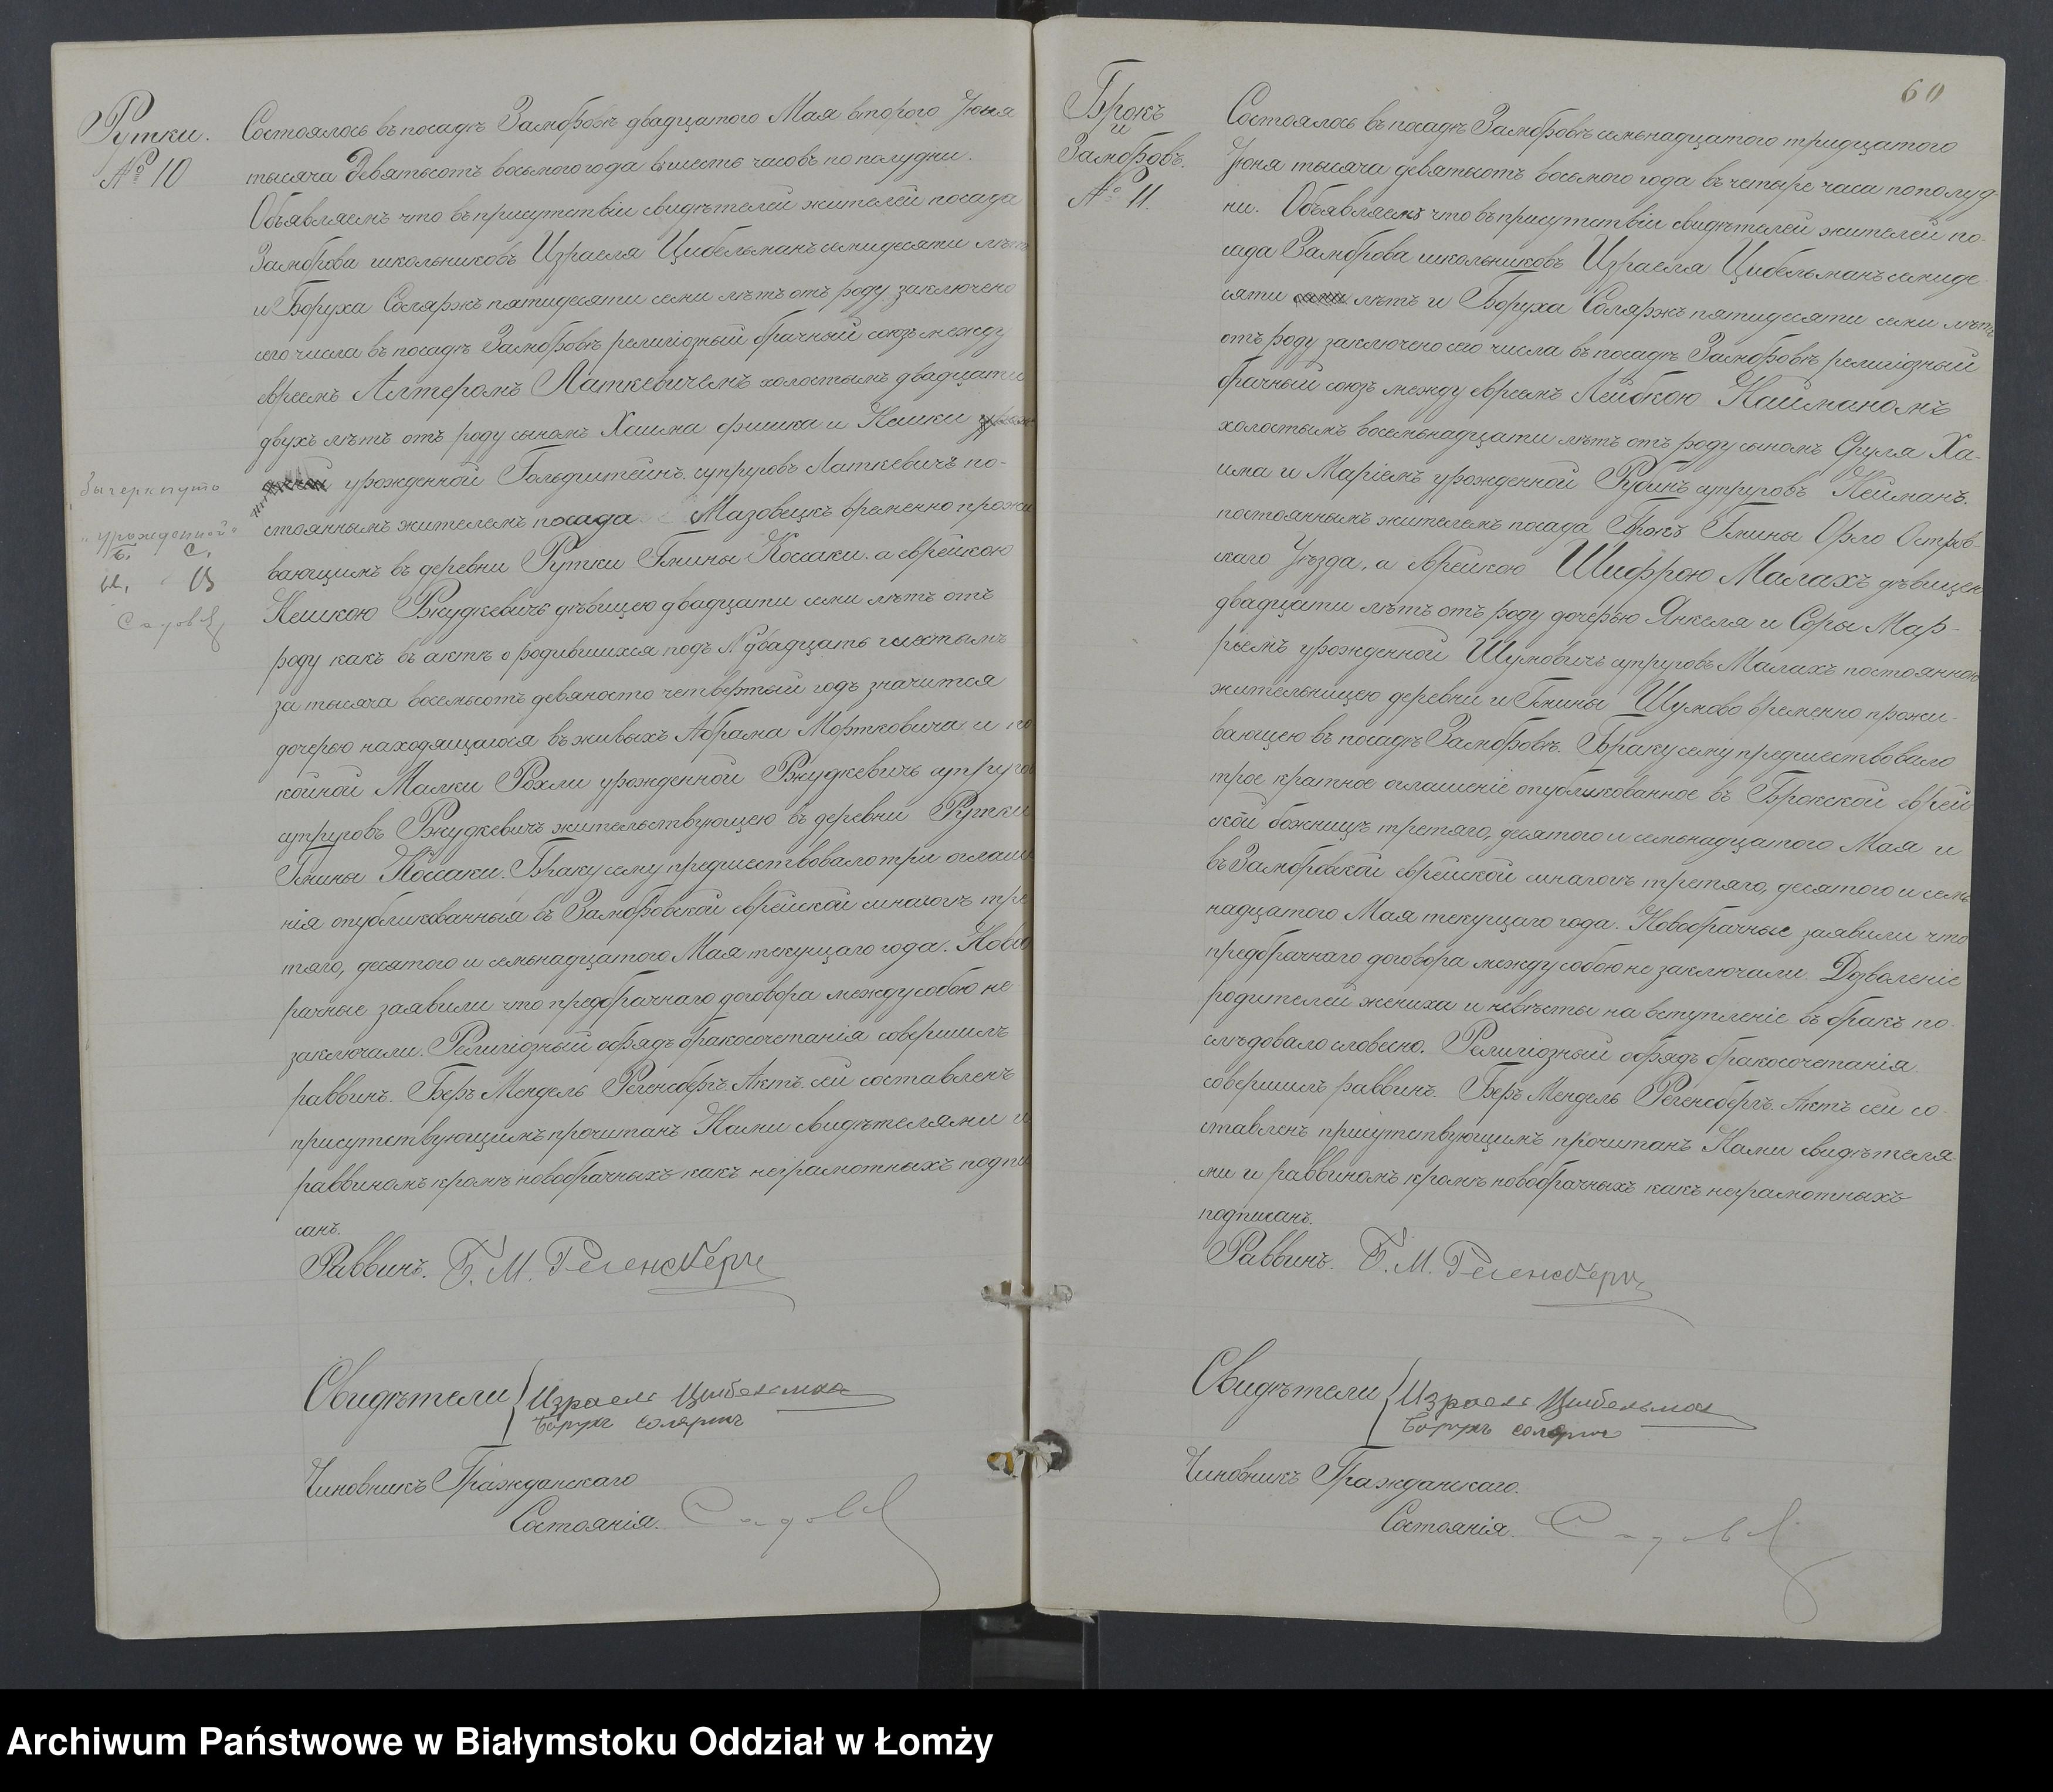 Рутки.
№ 10
Состоялось въ посадѣ Замбровѣ двадцатаго Мая второго Іюня
тысяча девятьсотъ восьмого года въ шесть часовъ по полудни.
Объявляемъ что въ присутствіи свидѣтелей жителей посада
Замброва школьниковъ Израеля Цибельманъ семидесяти лѣтъ
и Боруха Соляржъ пятидесяти семи лѣтъ отъ роду заключено
сего числа въ посадѣ Замбровѣ религіозный брачный союзъ между
евреемъ Алтеромъ Латкевичемъ холостымъ двадцати
двухъ лѣтъ отъ роду сыномъ Хаима Фишка и Нешки
урожденной Гольдштейнъ супруговъ Латкевичъ по-
стояннымъ жителемъ посада Мазовецкъ временно прожи
вающимъ въ деревни Рутки Гмины Коссаки. а еврейкою
Нешкою Ржудкевичъ дѣвицею двадцати семи лѣтъ отъ
роду какъ въ актѣ о родившихся подъ № двадцать шестымъ
за тысяча восемьсотъ девяносто четвертый годъ значится
дочерью находящагося въ живыхъ Абрама Мортковича и по
койной Малки Рохли урожденной Ржудкевичъ супругов
супруговъ Ржудкевичъ жительствующею въ деревни Рутки
Гмины Коссаки. Браку сему предшествовало три оглаше
нія опубликованныя въ Замбровской еврейской синагогѣ тре
тяго, десятого и семьнадцатого Мая текущаго года. Новоб
рачные заявили что предбрачнаго договора между собою не
заключали. Религіозный обрядъ бракосочетанія совершилъ
раввинъ. Беръ Мендель Регенсбергъ. Актъ сей составленъ
присутствующимъ прочитанъ Нами свидѣтелями и
раввиномъ кромѣ новобрачныхъ какъ неграмотныхъ подпи
санъ.
Раввинъ. Б. М. Регенсбергъ
Свидѣтели Израель Цибельман
Борухъ Соляржъ
Чиновникъ Гражданскаго
Состоянія.
Зачеркнуть
"урожденной"
60
Брокъ
и
Замбровъ.
№ 11.
Состоялось въ посадѣ Замбровѣ семьнадцатого тридцатого
Іюня тысяча девятьсотъ восьмого года въ четыре часа по полуд
ни. Объявляемъ что въ присутствіи свидѣтелей жителей по-
сада Замброва школьниковъ Израеля Цибельманъ семиде
сяти лѣтъ и Боруха Соляржъ пятидесяти семи лѣтъ
отъ роду заключено сего числа въ посадѣ Замбровѣ религіозный
брачный союзъ между евреемъ Лейбкою Найманомъ
холостымъ восемьнадцати лѣтъ отъ роду сыномъ Сруля Ха-
има и Маріемъ урожденной Рубинъ супруговъ Нейманъ.
постояннымъ жителемъ посада Брокъ Гмины Орло Остров-
скаго Уѣзда, а еврейкою Шифрою Малахъ дѣвицею
двадцати лѣтъ отъ роду дочерью Янкеля и Соры Мар-
ріемъ урожденной Шумовичъ супруговъ Малахъ постоянною
жительницею деревни и Гмины Шумово временно прожи-
вающею въ посадѣ Замбровѣ. Браку сему предшествовало
трое кратное оглашеніе опубликованное въ Брокской еврей
ской божницѣ третяго, десятого и семьнадцатого Мая и
въ Замбровской еврейской синагогѣ третяго, десятого и семь
надцатого Мая текущаго года. Новобрачные заявили что
предбрачнаго договора между собою не заключали. Дозволеніе
родителей жениха и невѣсты на вступленіе въ бракъ по-
слѣдовало словесно. Религіозный обрядъ бракосочетанія
совершилъ раввинъ. Беръ Мендель Регенсбергъ. Актъ сей со-
ставленъ присутствующимъ прочитанъ Нами свидѣтеля-
ми и раввиномъ кромѣ новобрачныхъ какъ неграмотныхъ
подписанъ.
Раввинъ. Б. М. Регенсбергъ
Свидѣтели Израель Цибельман
Борухъ Соляржъ
Чиновникъ Гражданскаго.
Состоянія.
Archiwum Państwowe w Białymstoku Oddział w Łomży